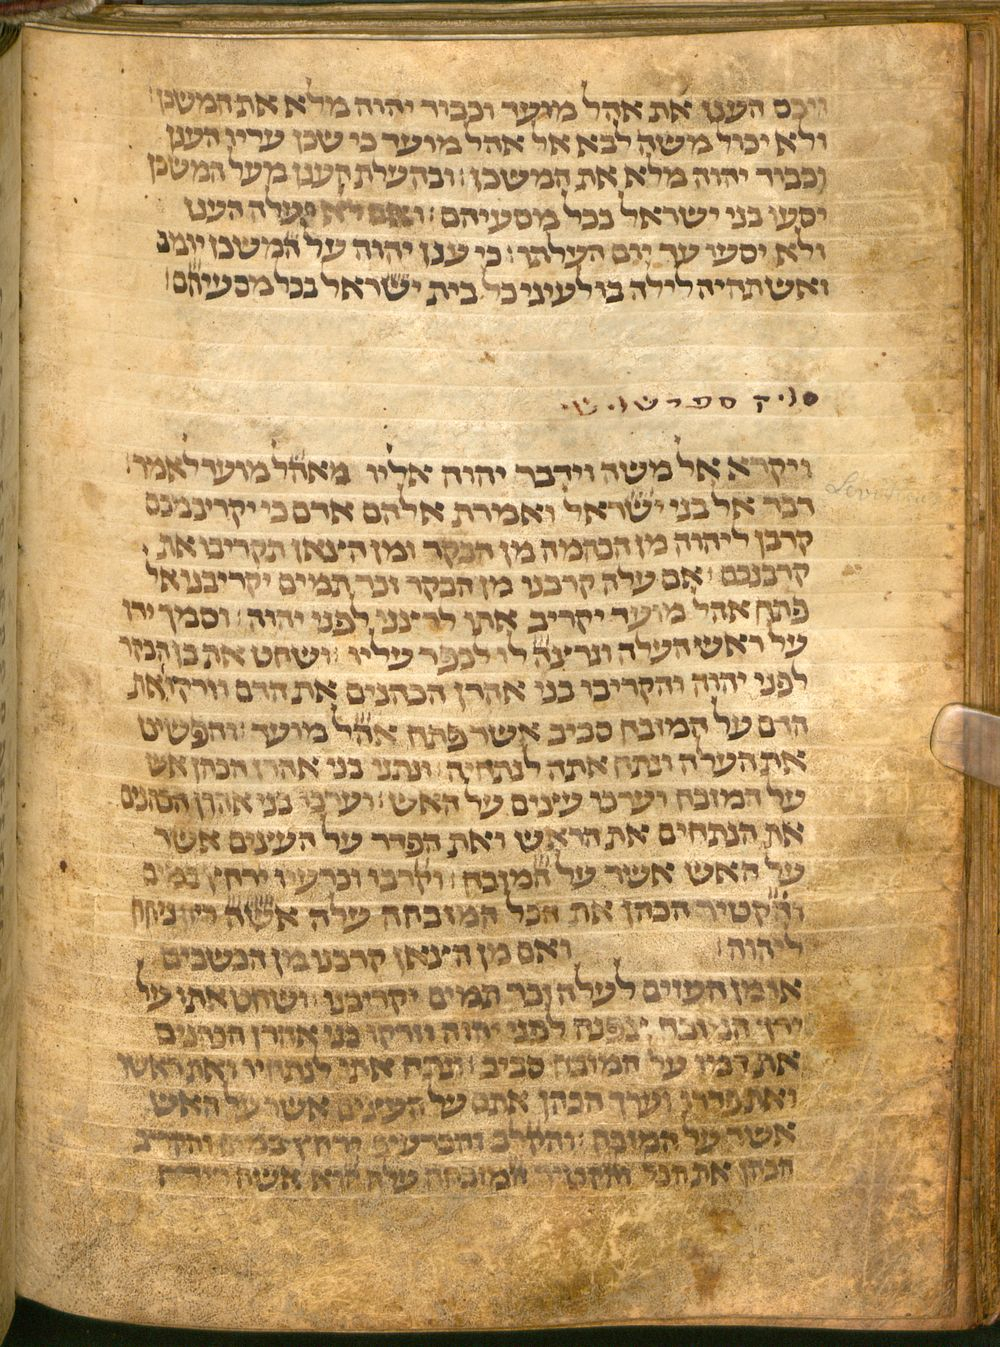 ויכס הענן את אהל מועד וכבוד יהוה מלא את המשכן׃
ולא יכול משה לבא אל אהל מועד כי שכן עליו הענן
וכבוד יהוה מלא את המשכן׃ ובהעלת הענן מעל המשכן
יסעו בני ישראל בכל מסעיהם׃ ואם לא יעלה הענן
ולא יסעו עד יום העלתו׃ כי ענן יהוה על המשכן יומם
ואש תהיה לילה בו לעיני כל בית ישראל בכל מסעיהם׃
סליק ספר
ויקרא אל משה וידבר יהוה אליו מאהל מועד לאמר׃
דבר אל בני ישראל ואמרת אלהם אדם כי יקריב מכם
קרבן ליהוה מן הבהמה מן הבקר ומן הצאן תקריבו את
קרבנכם׃ אם עלה קרבנו מן הבקר זכר תמים יקריבנו אל
פתח אהל מועד יקריב אתו לרצנו לפני יהוה׃ וסמך ידו
על ראש העלה ונרצה לו לכפר עליו׃ ושחט את בן הבקר
לפני יהוה והקריבו בני אהרן הכהנים את הדם וזרקו את
הדם על המזבח סביב אשר פתח אהל מועד׃ והפשיט
את העלה ונתח אתה לנתחיה׃ ונתנו בני אהרן הכהן אש
על המזבח וערכו עצים על האש׃ וערכו בני אהרן הכהנים
את הנתחים את הראש ואת הפדר על העצים אשר
על האש אשר על המזבח׃ וקרבו וכרעיו ירחץ במים
והקטיר הכהן את הכל המזבחה עלה אשה ריח ניחח
ליהוה׃ ואם מן הצאן קרבנו מן הכשבים
או מן העזים לעלה זכר תמים יקריבנו׃ ושחט אתו על
ירך המזבח צפנה לפני יהוה וזרקו בני אהרן הכהנים
את דמו על המזבח סביב׃ ונתח אתו לנתחיו ואת ראשו
ואת פדרו וערך הכהן אתם על העצים אשר על האש
אשר על המזבח׃ והקרב והכרעים ירחץ במים והקריב
הכהן את הכל והקטיר המזבחה עלה הוא אשה ריח